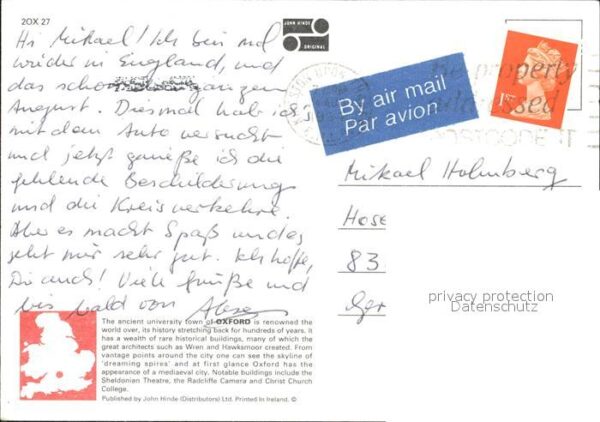 2OX 27
JOHN HINDE
ORIGINAL
Hi Mikael! Ich bin mal
wieder in England, und
das schon den ganzen
August. Diesmal hab ich es
mit dem Auto versucht
und jetzt genieße ich die
fehlende Beschilderung
und die Kreisverkehre.
Aber es macht Spaß und es
geht mir sehr gut. Ich hoffe,
Dir auch! Viele Grüße und
bis bald von
By air mail
Par avion
1ST
be property
addressed
POSTCODE IT
Mikael Holmberg
Hose
83
Ger
privacy protection
Datenschutz
The ancient university town of OXFORD is renowned the
world over, its history stretching back for hundreds of years. It
has a wealth of rare historical buildings, many of which the
great architects such as Wren and Hawksmoor created. From
vantage points around the city one can see the skyline of
'dreaming spires' and at first glance Oxford has the
appearance of a mediaeval city. Notable buildings include the
Sheldonian Theatre, the Radcliffe Camera and Christ Church
College.
Published by John Hinde (Distributors) Ltd. Printed in Ireland. ©